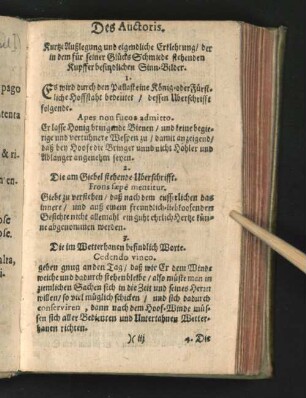 Des Auctoris.
Kurtze Außlegung und eigendliche Erklehrung/ der
in dem für seiner Glücks Schmiede stehenden
Kupffer befindlichen Sinn-Bilder.
1.
Es wird durch den Pallast eine König-oder Fürst-
liche Hoffstaht bedeutet / dessen Überschrifft
folgende.
Apes non fucos admitto.
Er lasse Honig bringende Bienen/ und keine begie-
rige und vertuhnere Wespen zu / damit anzeigend/
daß den Hoofe die Bringer und nicht Hohler und
Ablanger angenehm seyen.
2.
Die am Giebel stehende Überschrifft.
Frons sæpè mentitur.
Giebt zu verstehen/ daß nach dem eusserlichen das
innere/ und auß einem freundlich-liebkosenden
Gesichte nicht allemahl ein guht ehrlich Hertze künne
abgenommen werden.
3.
Die im Wetterhanen befindlich Worte.
Cedendo vinco.
geben gnug anden Tag/ daß wie Er dem Winde
weiche und dadurch stehen bleibe/ also müste man in
ziemlichen Sachen sich in die Zeit und seines Herrn
willen/ so viel müglich schicken / und sich dadurch
conserviren, dann nach dem Hoof-Winde müs-
sen sich aller Bedienten und Untertahnen Wetter-
hanen richten.
)( iij
4. Die
pago
ntenta
& ri-
en.
ose
ose
alta,
i,